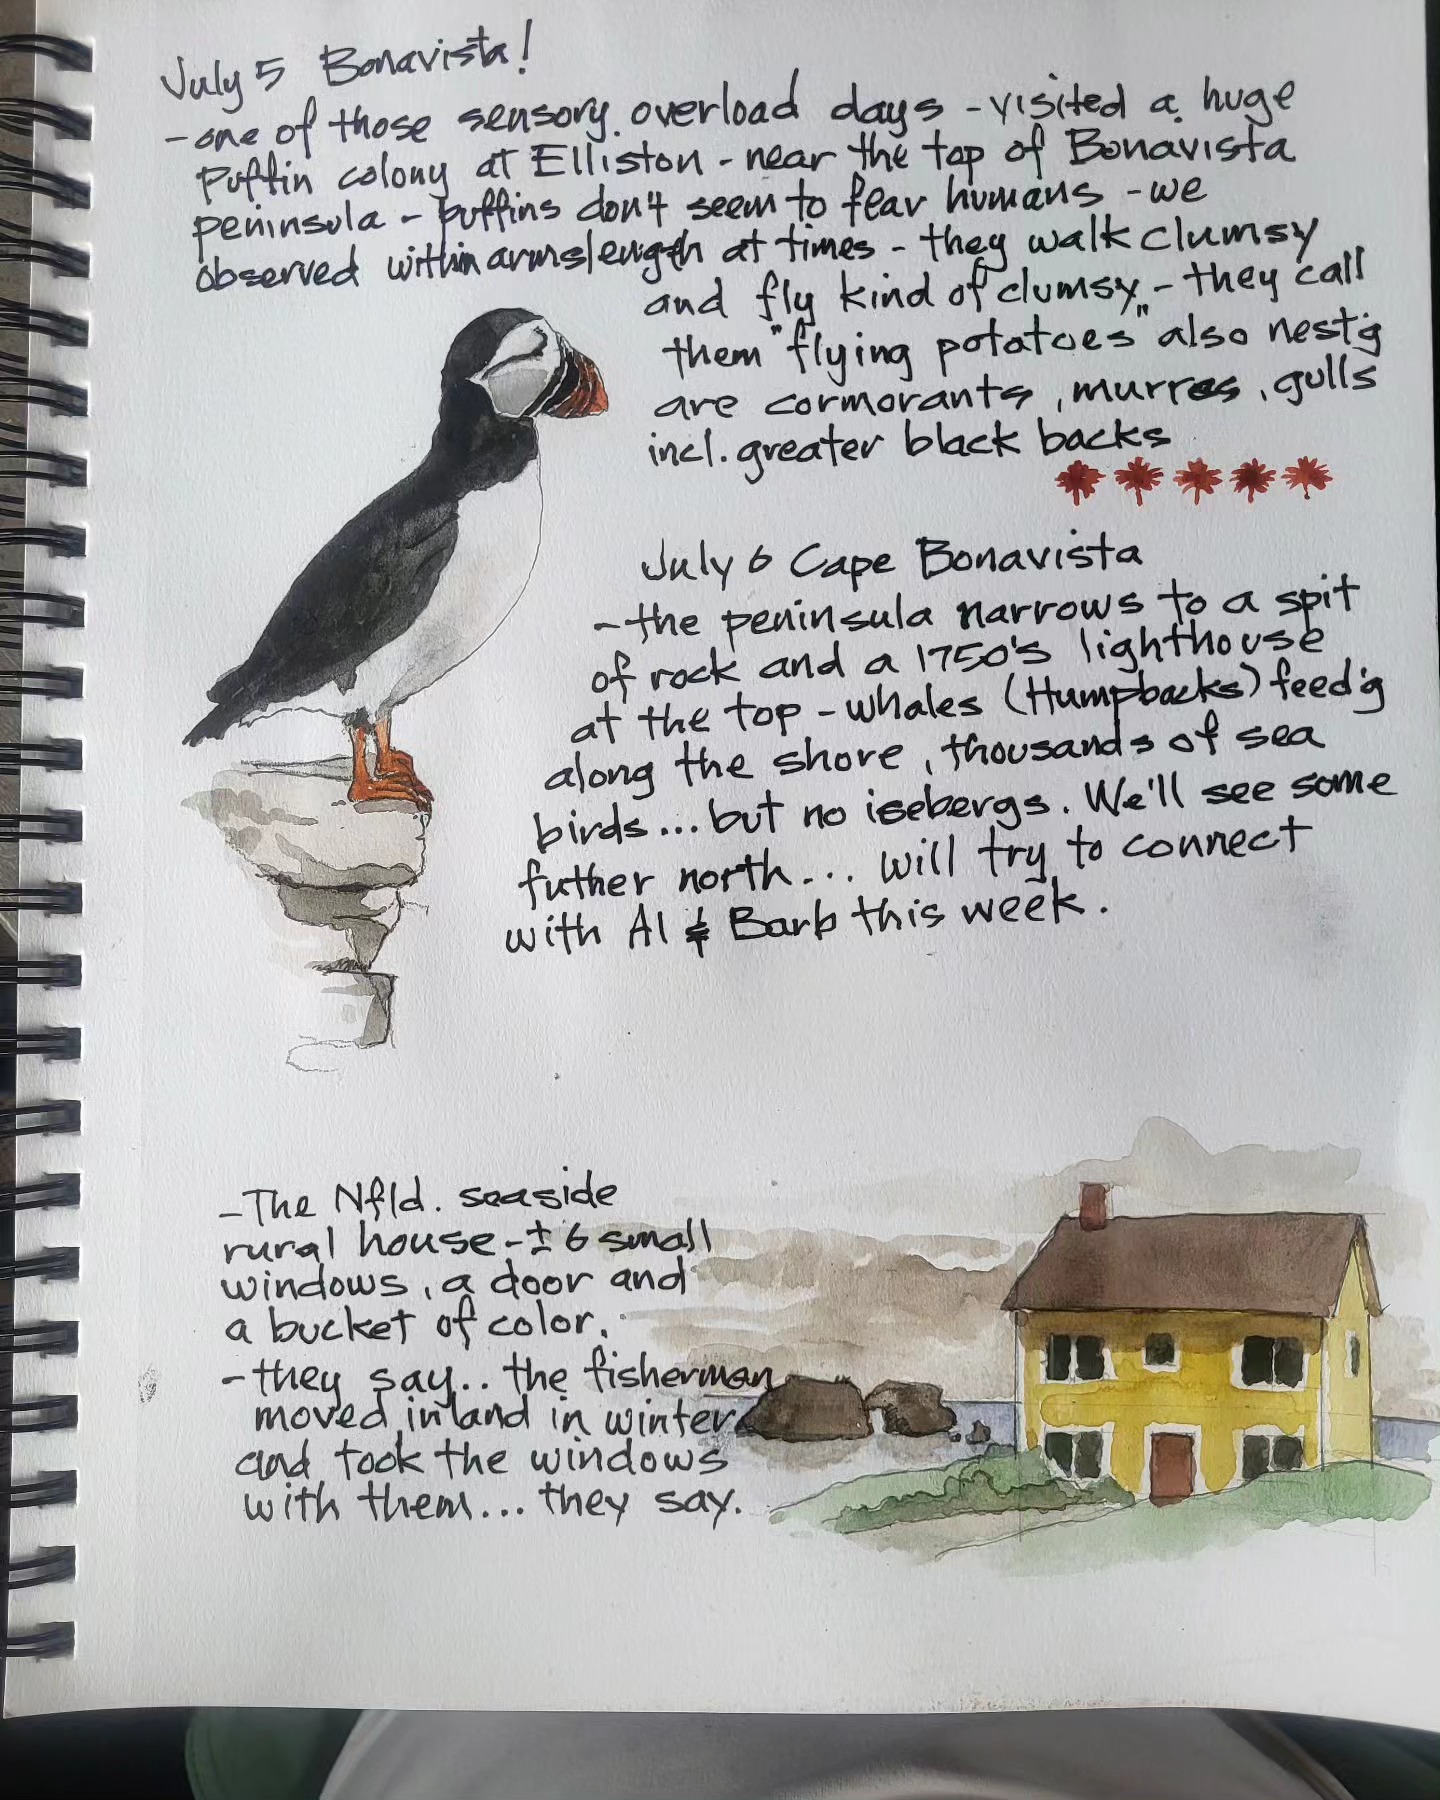 July 5 Bonavista!
- one of those sensory overload days - visited a huge
Puffin colony at Elliston - near the top of Bonavista
peninsula - puffins don't seem to fear humans - we
observed within armslength at times - they walk clumsy
and fly kind of clumsy - they call
them "flying potatoes" also nest'g
are cormorants, murres, gulls
incl. greater black backs
July 6 Cape Bonavista
- the peninsula narrows to a spit
of rock and a 1750's lighthouse
at the top - whales (Humpbacks) feed'g
along the shore, thousands of sea
birds... but no isebergs. We'll see some
futher north... will try to connect
with Al & Barb this week.
- The Nfld. seaside
rural house - ± 6 small
windows, a door and
a bucket of color.
- they say.. the fisherman
moved inland in winter
and took the windows
with them... they say.